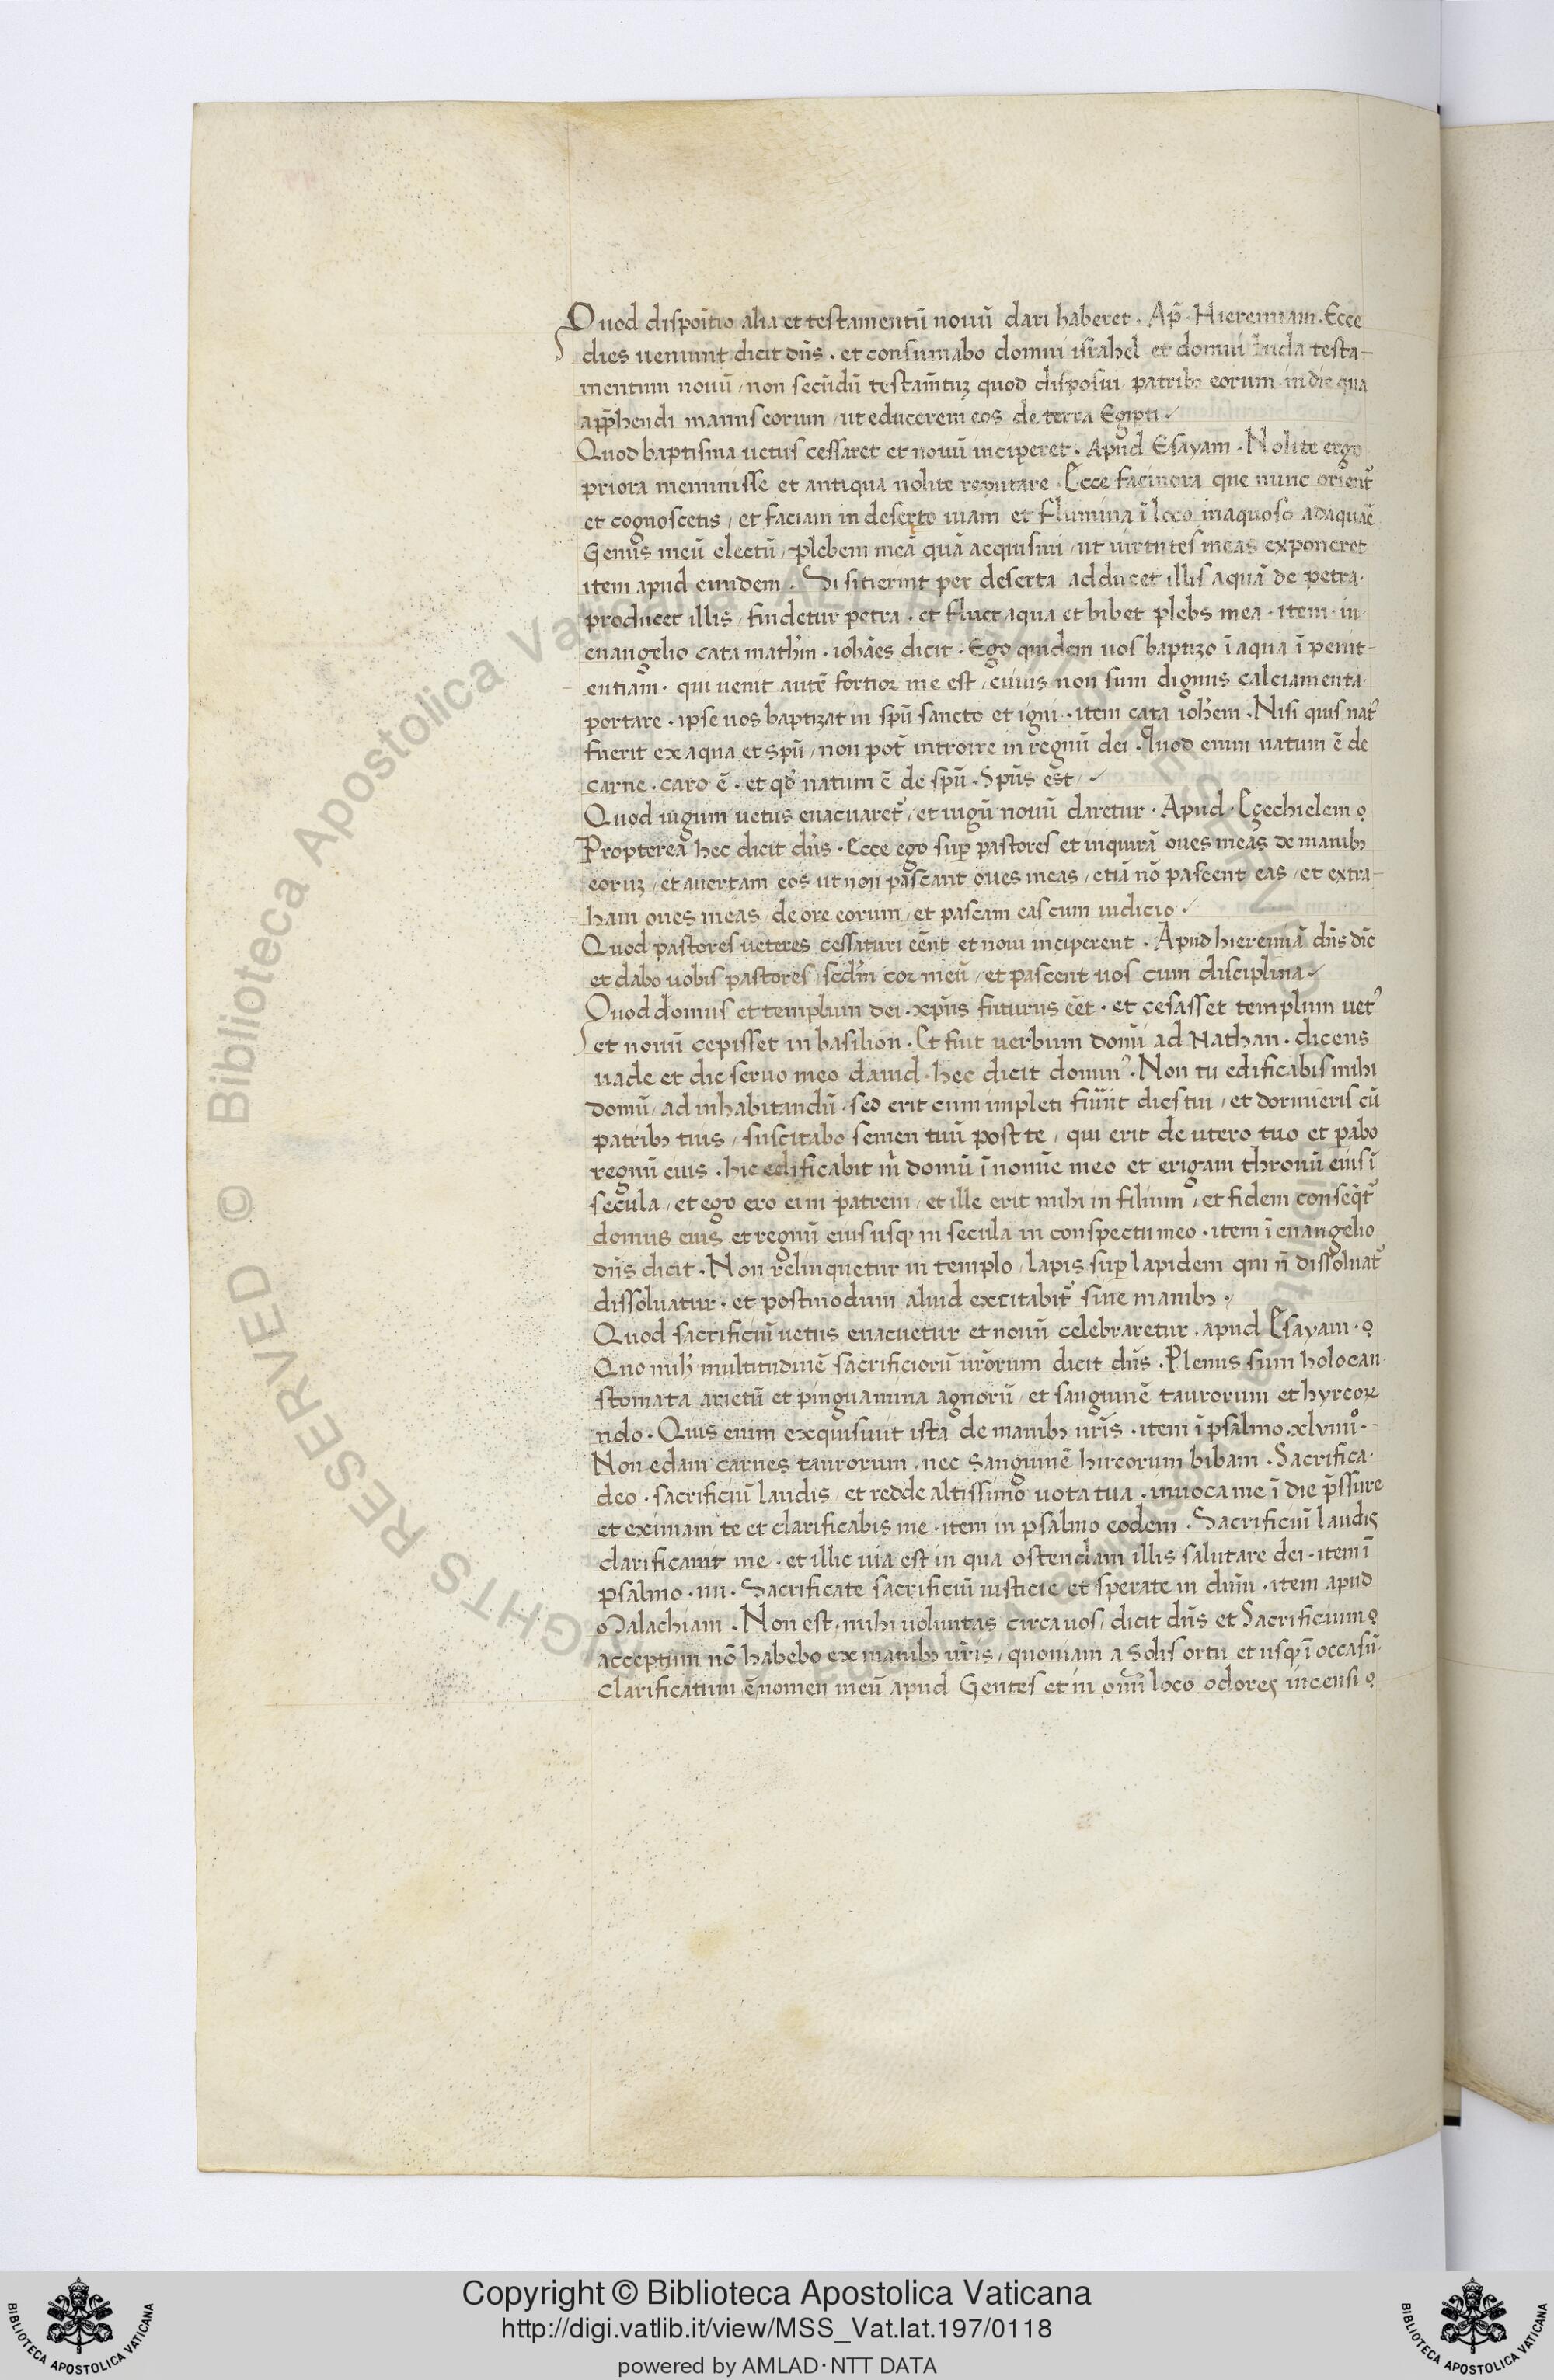 Quod dispoitio alia et testamentũ nouũ dari haberet · Ap̃ · Hieremiam · Ecce
dies ueniunt dicit dñs · et consumabo domui israhel et domui iuda testa-
mentum nouũ / non secũdũ testam̃tuꝫ quod disposui patribꝫ eorum in die qua
app̃hendi manus eorum / ut educerem eos de terra Egipti /
Quod baptisma uetus cessaret et nouũ inciperet · Apud Esayam · Nolite ergo
priora meminisse et antiqua nolite reputare · Ecce facinora que nunc orient᷑
et cognoscetis / et faciam in deserto uiam et flumina ĩ loco inaquoso adaquaẽ
Genus meũ electũ / plebem meã quã acquisiui / ut uirtutes meas exponeret
item apud eundem · Si sitierint per deserta adducet illis aquã de petra ·
producet illis / findetur petra · et fluet aqua et bibet plebs mea · item · in
euangelio cata math̃m · iohães dicit · Ego quidem uos baptizo ĩ aqua ĩ penit-
entiam · qui uenit autẽ fortior me est / cuius non sum dignus calciamenta
portare · ipse uos baptizat in spũ sancto et igni · item cata ioh̃em · Nisi quis nat᷒
fuerit ex aqua et spũ / non pot̃ introire in regnũ dei · Quod enim natum ẽ de
carne · caro ẽ · et qd̃ natum ẽ de spũ · Spũs est /
Quod iugum uetus euacuaret᷑ / et iugũ nouũ daretur · Apud · Egechielem
Propterea hec dicit dñs · Ecce ego sup̲ pastores et inquirã oues meas de manibꝫ
eoruꝫ / et auertam eos ut non pascant oues meas / etiã nõ pascent eas / et extra-
ham oues meas / de ore eorum / et pascam eas cum iudicio /
Quod pastores ueteres cessaturi eẽnt et noui inciperent · Apud hieremiã dñs dic̃
et dabo uobis pastores / sed̃m cor meũ / et pascent uos cum disciplina /
Quod domus et templum dei · xp̃us futurus eẽt · et cesasset templum uet᷒
et nouũ cepisset in basilion · Et fiut uerbum domĩ ad Nathan · dicens
uade et dic seruo meo dauid · hec dicit domin᷒ · Non tu edificabis mihi
domũ / ad inhabitandũ · sed erit cum impleti fiũnt dies tui / et dormieris cũ
patribꝫ tuis / suscitabo semen tuũ post te / qui erit de utero tuo et pabo
regnũ eius · hic edificabit m̃ domũ ĩ nomĩe meo et erigam thronũ eius ĩ
secula / et ego ero ei in patrem / et ille erit mihi in filium / et fidem conseq̃t᷑
domus eius et regnũ eius usqꝫ in secula in conspectu meo · item ĩ euangelio
dñs dicit · Non relinquetur in templo / lapis sup̲ lapidem qui ñ dissoluat᷑
dissoluatur · et postmodum aliud excitabit᷑ sine manibꝫ ·
Quod sacrificiũ uetus euacuetur et nouũ celebraretur · apud Esayam ·
Quo mih̃ multitudinẽ sacrificiorũ ur̃orum dicit dñs · Plenus sum holocau-
stomata arietũ et pinguamina agnorũ / et sanguinẽ taurorum et hyrcoꝝ
nolo · Quis enim exquisiuit ista de manibꝫ ur̃is · item ĩ psalmo · xlviiii° ·
Non edam carnes taurorum · nec Sanguinẽ hircorum bibam · Sacrifica ·
deo · sacrificiũ laudis / et redde altissimo uota tua · inuoca me ĩ die p̃ssure
et eximam te et clarificabis me · item in psalmo eodem · Sacrificiũ laudis
clarificauit me · et illic uia est in qua ostendam illis salutare dei · item ĩ
psalmo · iiii · Sacrificate sacrificiũ iusticie et sperate in dñm · item apud
Malachiam · Non est / mihi uoluntas circa uos / dicit dñs et Sacrificium
acceptum nõ habebo ex manibꝫ ur̃is / quoniam a Solis ortu et usqꝫ ĩ occasũ
Clarificatum ẽ nomen meũ apud Gentes et in om̃i loco odores incensi
© Biblioteca Apostolica Vaticana ALL RIGHTS RESERVED
Copyright © Biblioteca Apostolica Vaticana
http://digi.vatlib.it/view/MSS_Vat.lat.197/0118
powered by AMLAD·NTT DATA
BIBLIOTECA APOSTOLICA VATICANA
BIBLIOTECA APOSTOLICA VATICANA